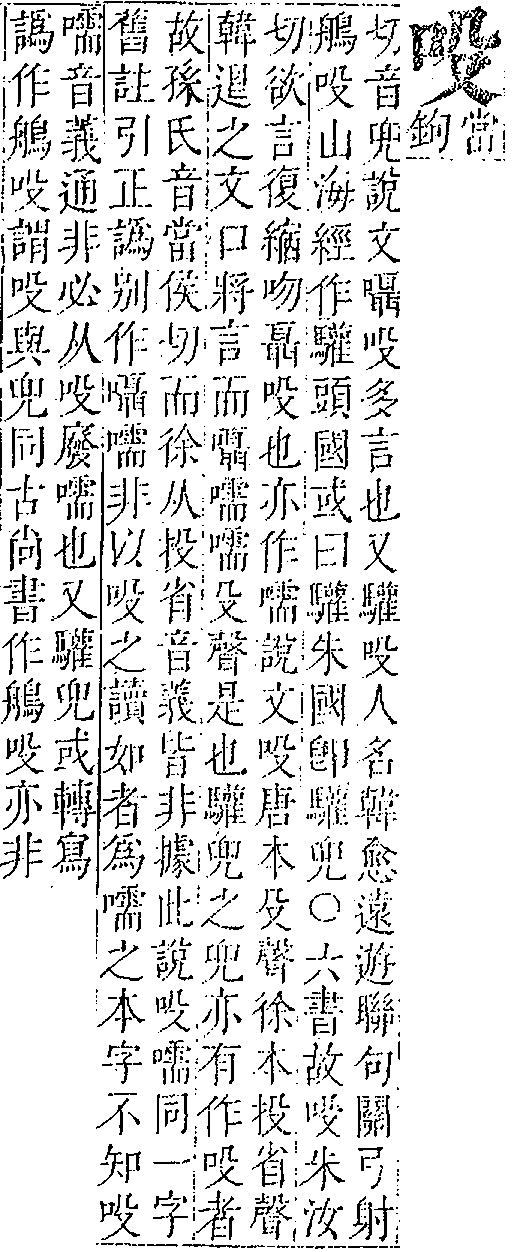 吺
當鉤
切音兜說文囁吺多言也又驩吺人名韓愈遠遊聯句關弓射
鴅吺山海經作驩頭國或曰驩朱國卽驩兜○六書故吺朱汝
切欲言復縮吻嚞吺也亦作嚅說文吺唐本殳聲徐本投省聲
韓退之文口將言而囁嚅嚅殳聲是也驩兜之兜亦有作吺者
故孫氏音當侯切而徐从投省音義皆非據此說吺嚅同一字
舊註引正譌别作囁嚅非以吺之讀如者爲嚅之本字不知吺
嚅音義通非必从吺廢嚅也又驩兜或轉寫
譌作鴅吺謂吺與兜同古尙書作鴅吺亦非